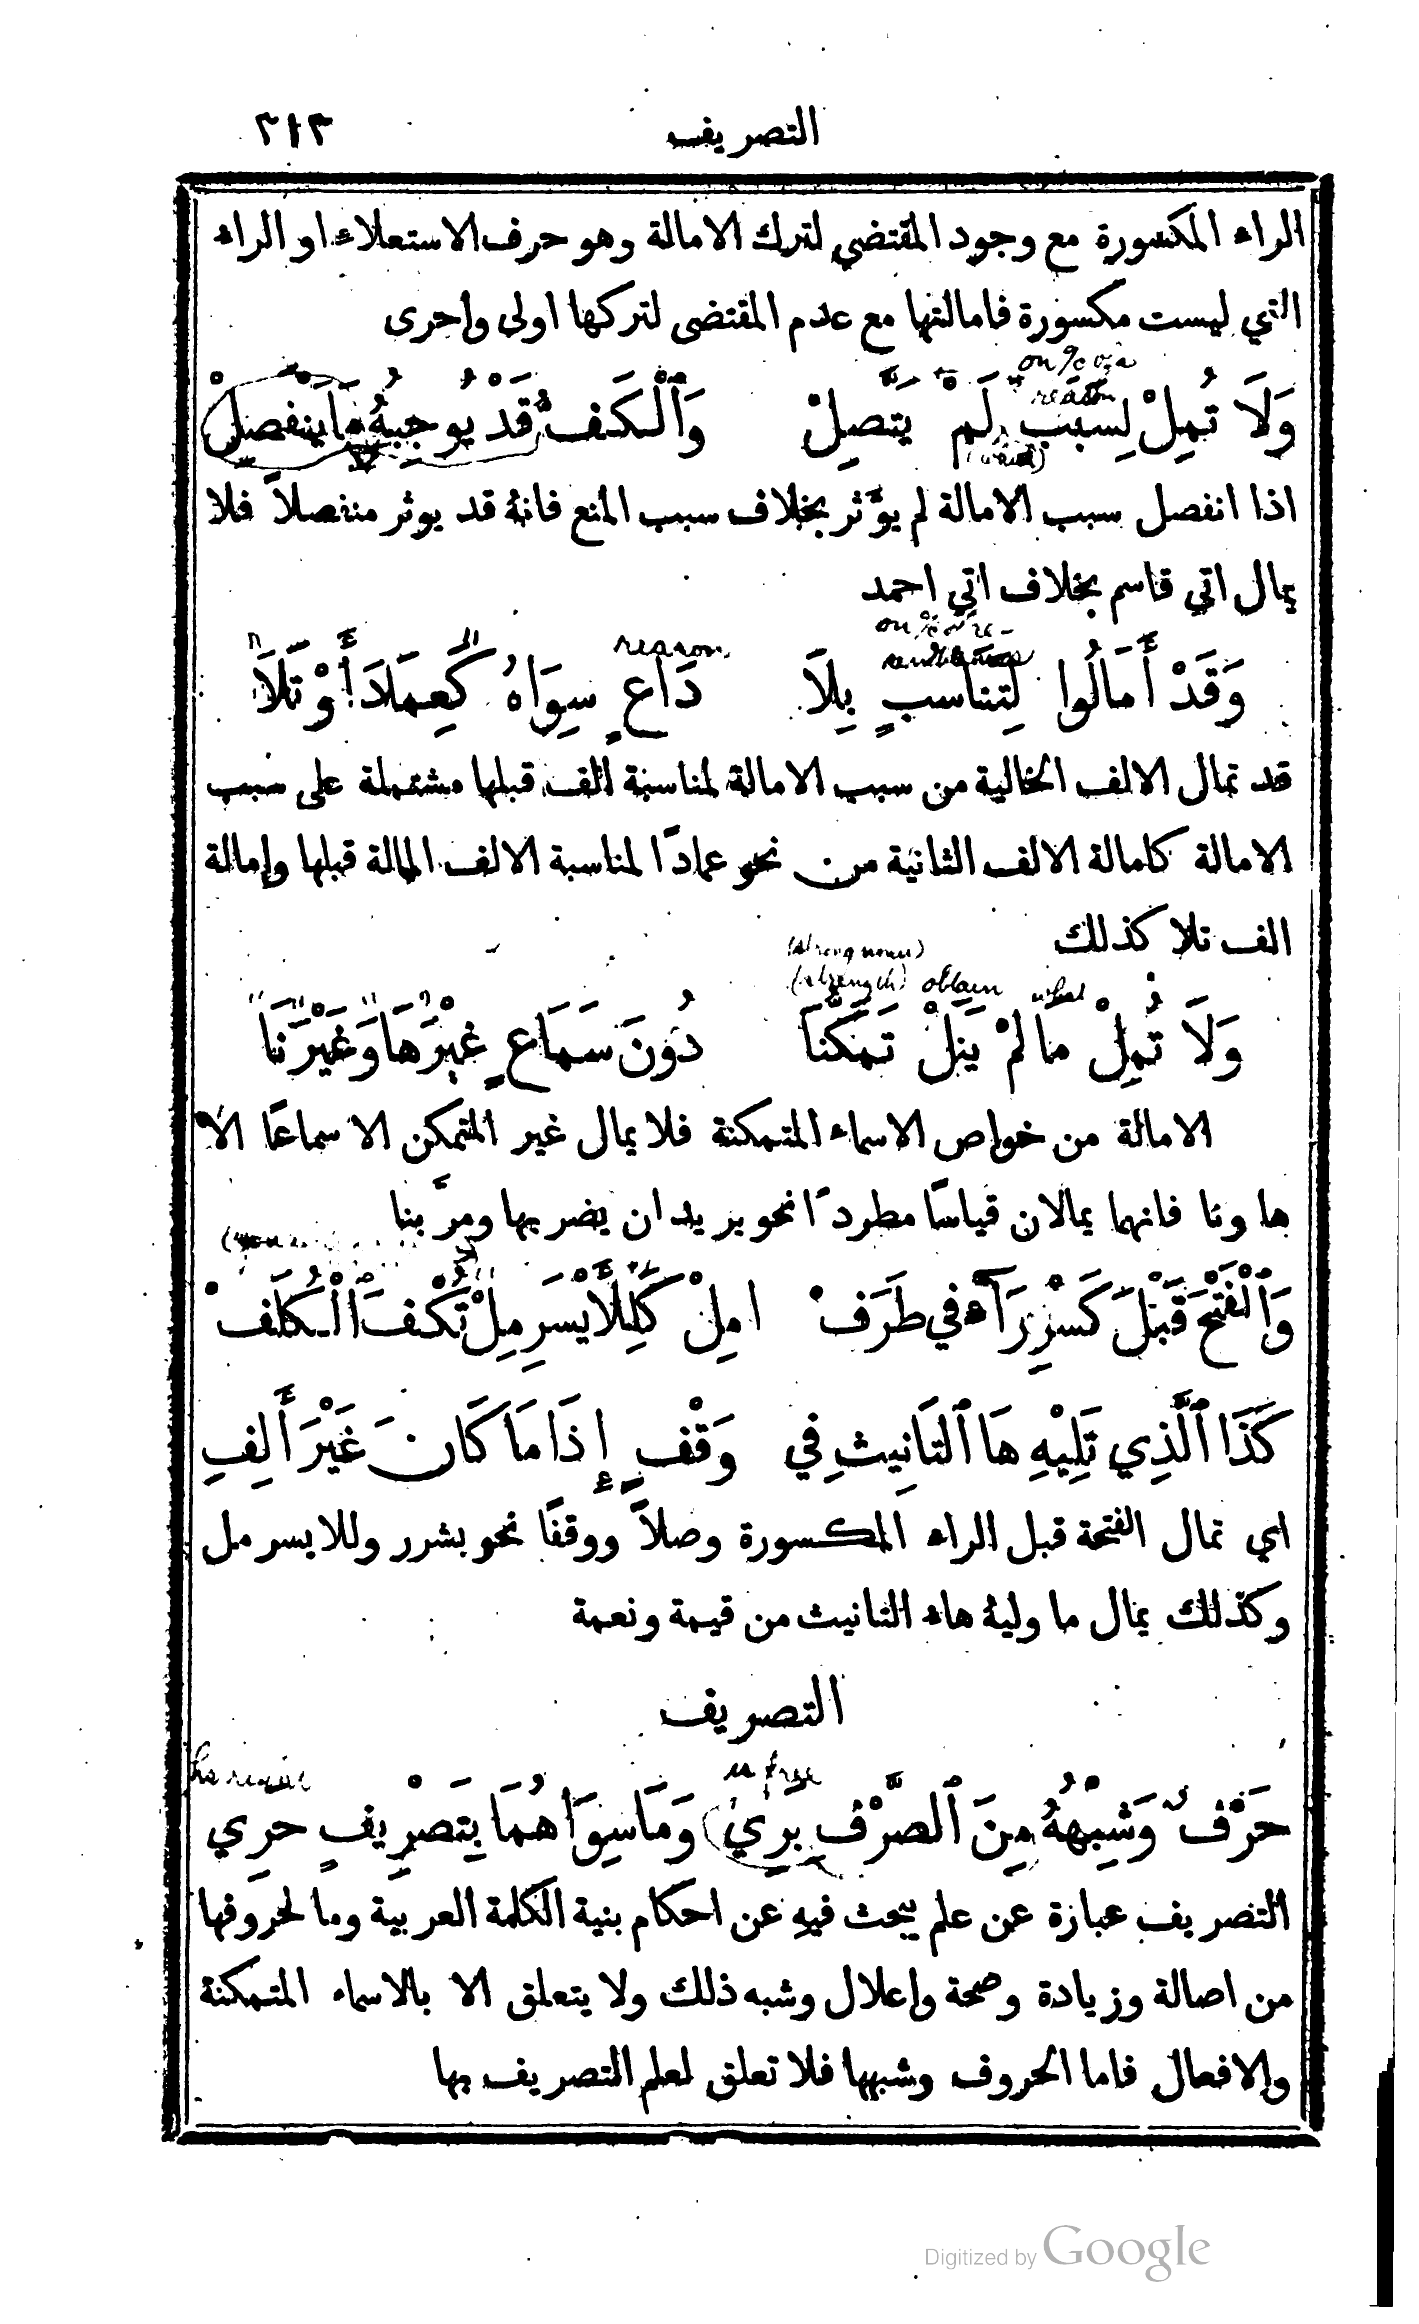 التصريف ٣١٣
الراء المكسورة مع وجود المقتضي لترك الامالة وهو حرف الاستعلاء او الراء
التي ليست مكسورة فامالتها مع عدم المقتضى لتركها اولى واحرى
on %
reason
وَلَا تُمِلْ لِسَبَبٍ لَمْ يَتَّصِلْ وَٱلْكَفُّ قَدْ يُوجِبُهُ مَا يَنْفَصِلْ
اذا انفصل سبب الامالة لم يوَّثر بخلاف سبب المنع فانهُ قد يوثر منفصلاً فلا
يمال اتي قاسم بخلاف اتي احمد
reason
وَقَدْ أَمَالُوا لِتَنَاسُبٍ بِلَا دَاعٍ سِوَاهُ كَعِمَادَا أَوْ تَلَا
قد تمال الالف الخالية من سبب الامالة لمناسبة الف قبلها مشتملة على سبب
الامالة كامالة الالف الثانية من نحو عمادًا لمناسبة الالف الممالة قبلها وإمالة
الف تلا كذلك
(strong noun)
(strength) obtain what
وَلَا تُمِلْ مَا لَمْ يَنَلْ تَمَكُّنَا دُونَ سَمَاعٍ غَيْرَ هَا وَغَيْرَ نَا
الامالة من خواص الاسماء المتمكنة فلا يمال غير المتمكن الا سماعًا الا
ها ونا فانهما يمالان قياسًا مطردًا نحو يريد ان يضربها ومرَّ بنا
وَٱلْفَتْحَ قَبْلَ كَسْرِ رَاءٍ في طَرَفْ امِلْ كَلِلْأَيْسَرِ مِلْ تُكْفَ ٱلْكُلَفْ
كَذَا ٱلَّذِي تَلِيْهِ هَا ٱلتَانِيثِ فِي وَقْفٍ إِذَا مَا كَانَ غَيْرَ أَلِفِ
اي تمال الفتحة قبل الراء المكسورة وصلاً ووقفًا نحو بشرر وللايسر مل
وكذلك يمال ما وليهُ هاء التانيث من قيمة ونعمة
التصريف
is free
حَرْفٌ وَشِبْهُهُ مِنَ ٱلصَّرْفِ بَرِي وَمَا سِوَاهُمَا بِتَصْرِيفٍ حَرِي
التصريف عبارة عن علم يبحث فيهِ عن احكام بنية الكلمة العربية وما لحروفها
من اصالة وزيادة وصحة وإعلال وشبه ذلك ولا يتعلق الا بالاسماء المتمكنة
والافعال فاما الحروف وشبهها فلا تعلق لعلم التصريف بها
Digitized by Google